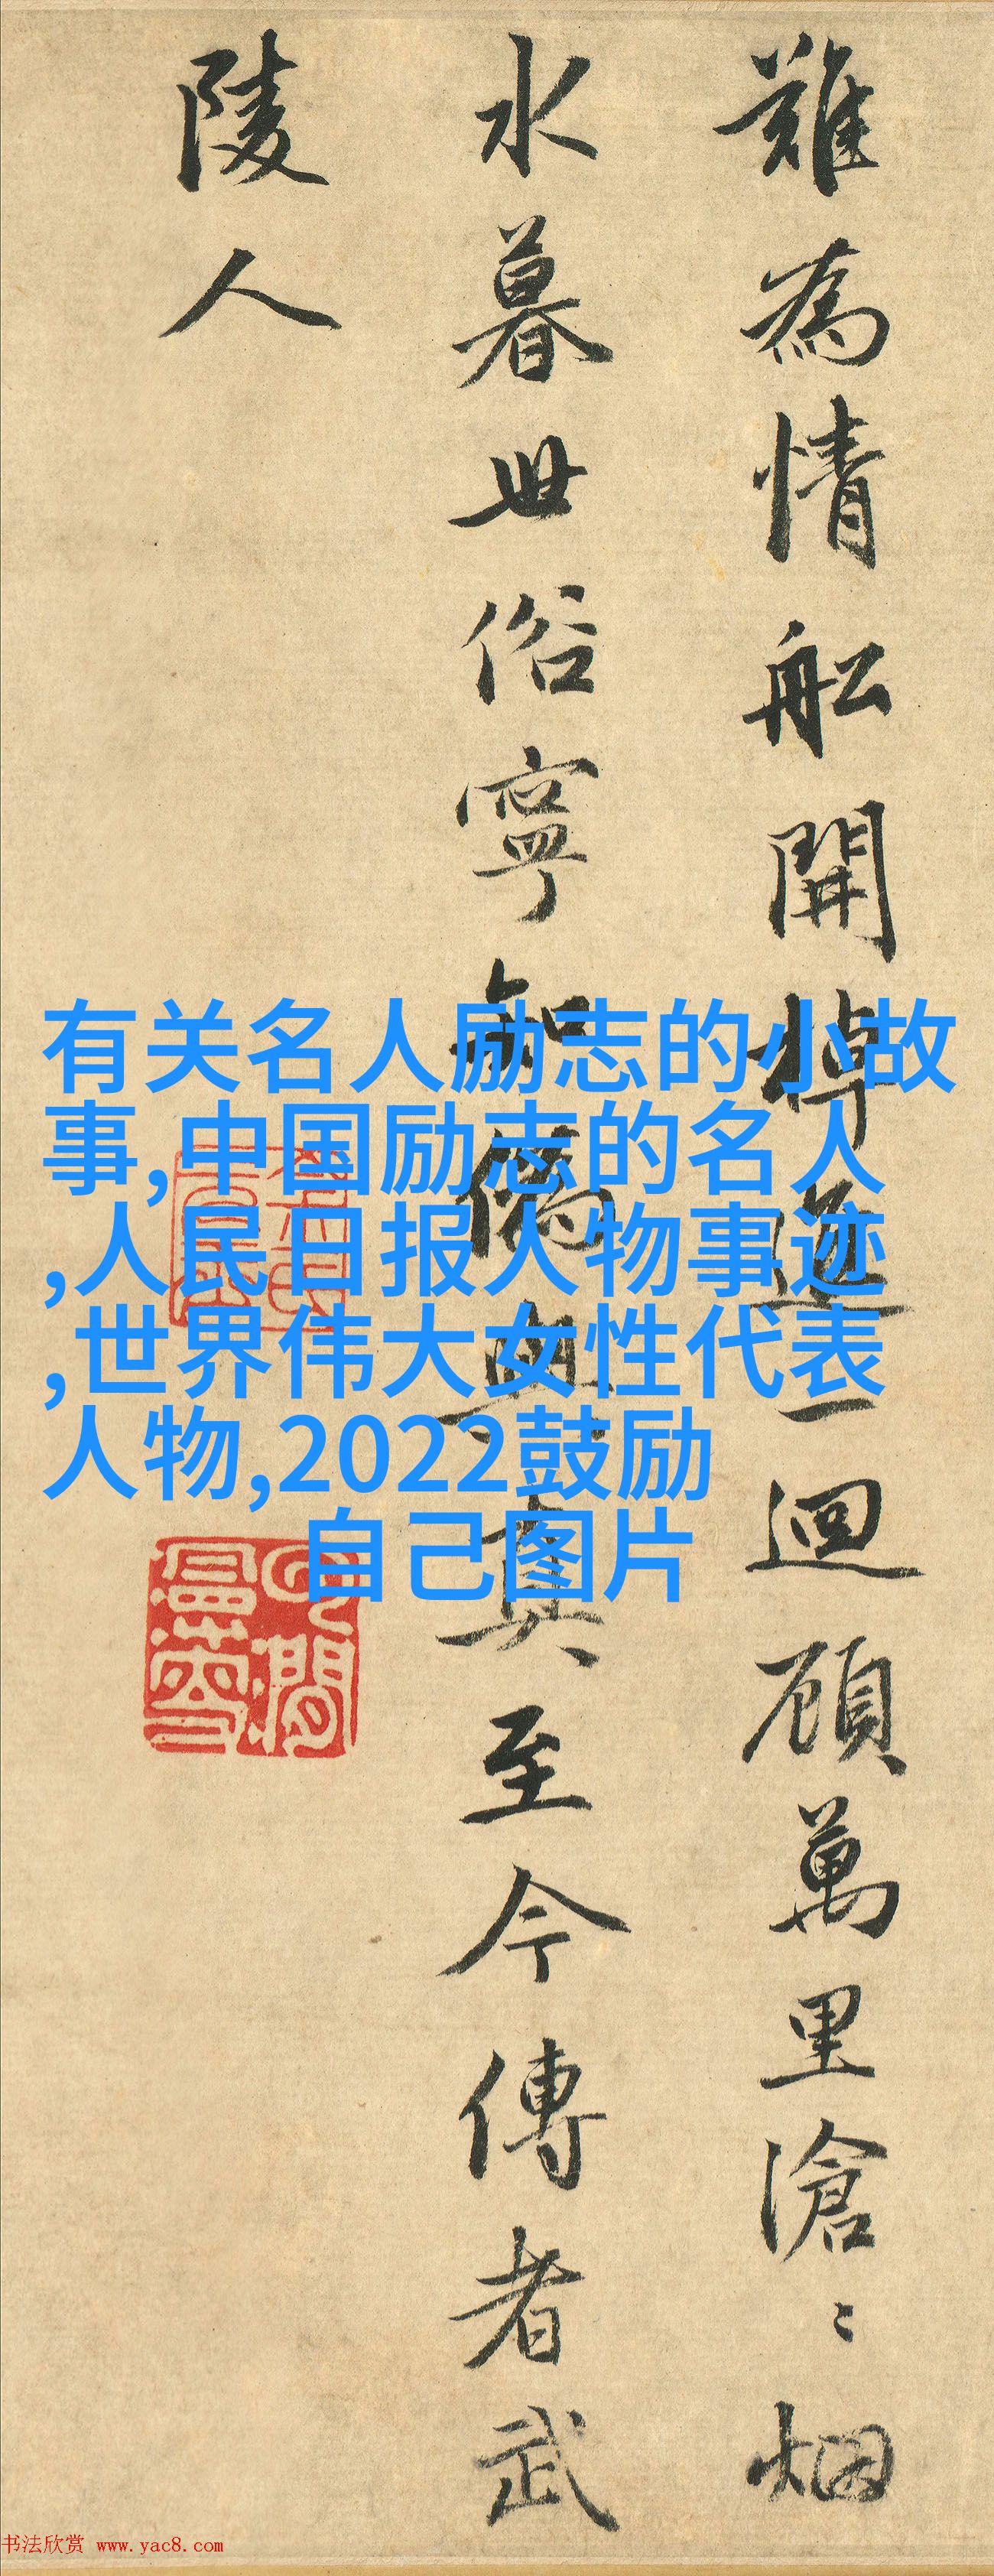 難為情舩開棹進一迴顧萬里滄〻烟
水暮世俗寧知偽與真至今傳者武
陵人
有关名人励志的小故
事,中国励志的名人
,人民日报人物事迹
,世界伟大女性代表
人物,2022鼓励
自己图片
书法欣赏 www.yac8.com